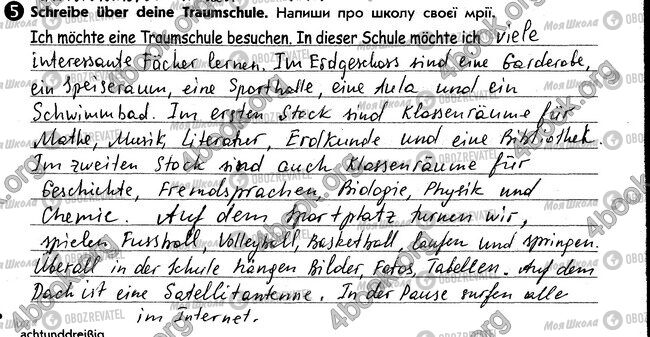 5 Schreibe über deine Traumschule. Напиши про школу своєї мрії.
Ich möchte eine Traumschule besuchen. In dieser Schule möchte ich viele
interessante Fächer lernen. Im Erdgeschoss sind eine Garderobe,
ein Speiseraum, eine Sporthalle, eine Aula und ein
Schwimmbad. Im ersten Stock sind Klassenräume für
Mathe, Musik, Literatur, Erdkunde und eine Bibliothek.
Im zweiten Stock sind auch Klassenräume für
Geschichte, Fremdsprachen, Biologie, Physik und
Chemie. Auf dem Sportplatz turnen wir,
spielen Fussball, Volleyball, Basketball, laufen und springen.
Überall in der Schule hängen Bilder, Fotos, Tabellen. Auf dem
Dach ist eine Satellitantenne. In der Pause surfen alle
im Internet.
achtunddreißig